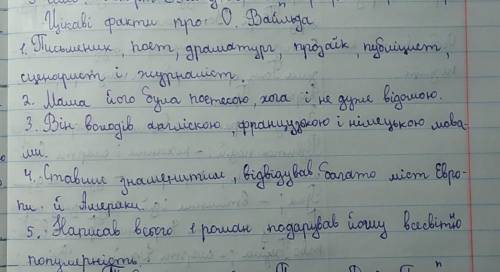 Цікаві факти про О. Вайльда
1. Письменник, поет, драматург, прозаїк, публіцист,
сценарист і журналіст.
2. Мама його була поетесою, хоча і не дуже відомою.
3. Він володів англіскою, французкою і німецькою мова-
ми.
4. Ставши знаменитим, відвідував багато міст Євро-
пи й Америки.
5. Написав всього 1 роман подарував йому всесвітню
популярність